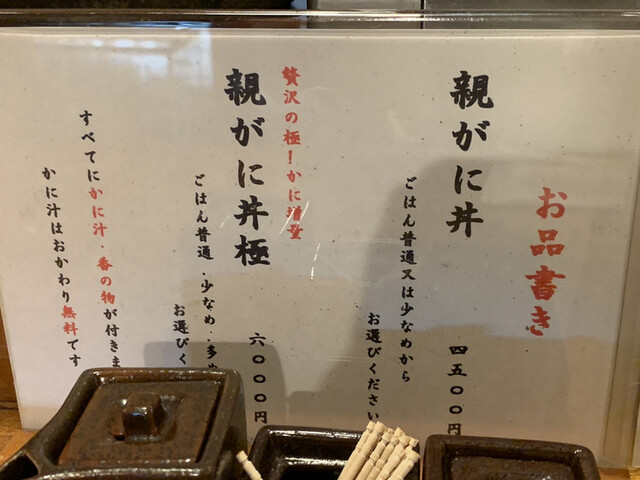 お品書き
親がに丼 四五〇〇円
ごはん普通又は少なめから
お選びください
贅沢の極!かに増量
親がに丼極 六〇〇〇円
ごはん普通・少なめ・多め
お選びく
すべてにかに汁・香の物が付きま
かに汁はおかわり無料です